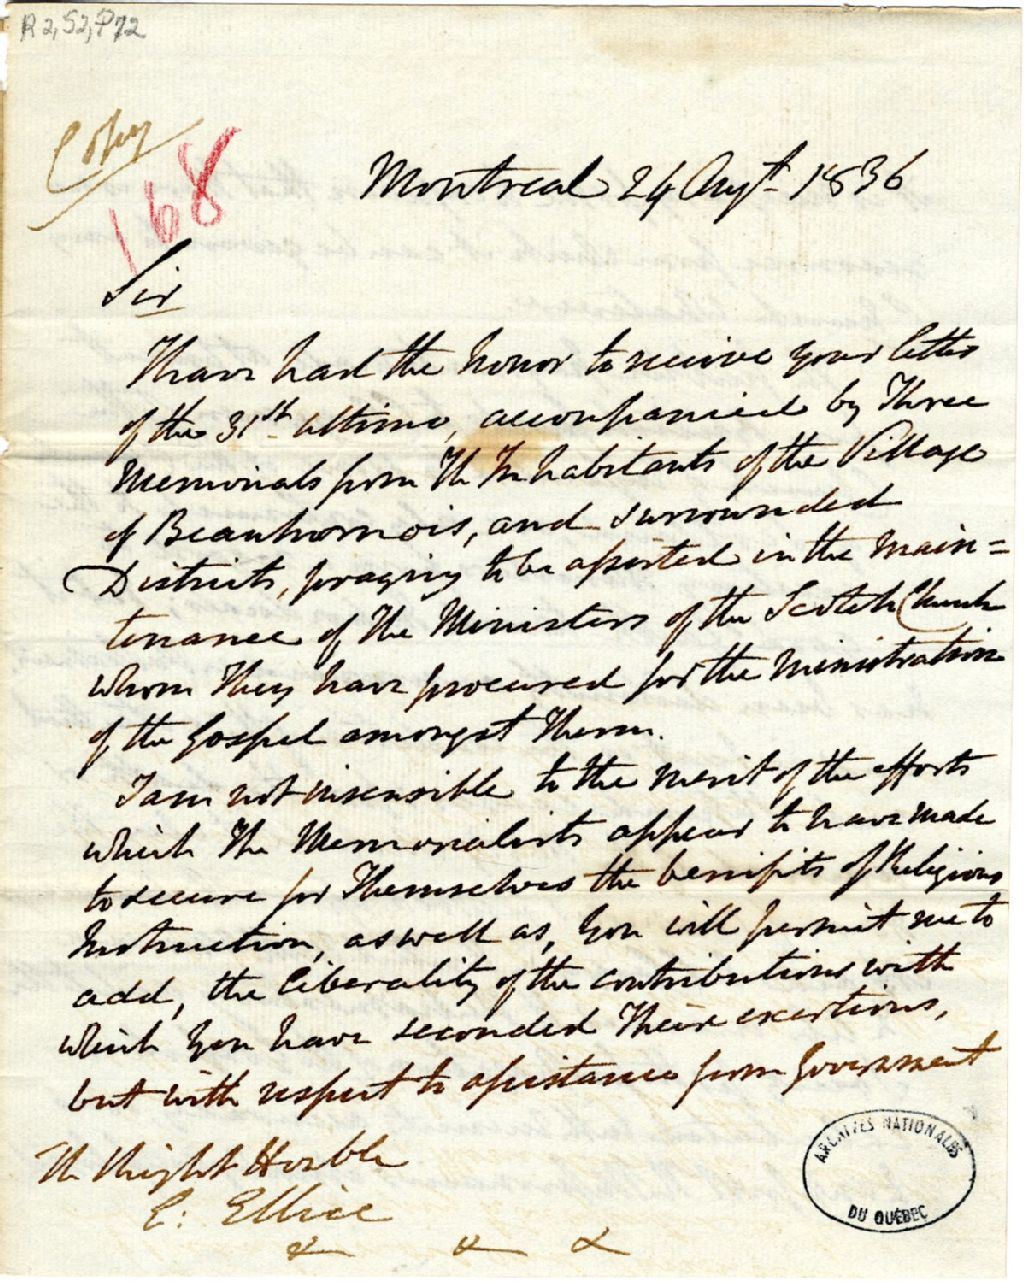 R2,S2,P72
Copy
168
Montreal 24 Augt. 1836
Sir
I have had the honor to receive your letter
of the 31st. ultimo, accompanied by Three
Memorials from Th Inhabitants of the Village
of Beauharnois, and surrounded
Districts, praying to be assisted in the main=
tenance of The Ministers of the Scotch Church
whom They have procured for the Ministration
of the Gospel amongst Them.
I am not insensible to the merit of the efforts
which The Memorialists appear to have made
to secure for Themselves the benefits of Religious
Instruction, as well as, you will permit me to
add, the liberality of the contributions with
which you have seconded Their exertions,
but with respect to assistance from Government
Th Right Honble
E: Ellice
& & &
ARCHIVES NATIONALES
DU QUÉBEC